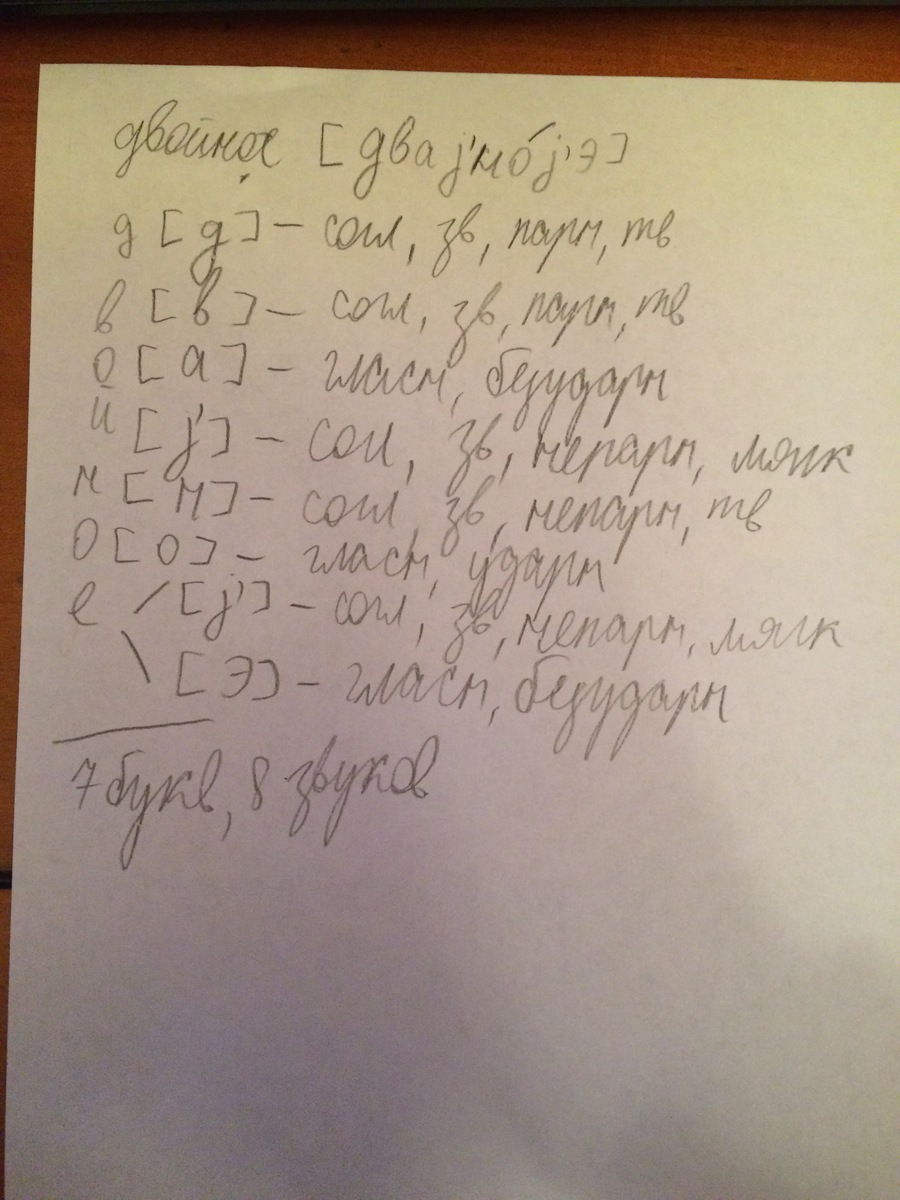 двойное [дваj'но́j'э]
д [д] - согл, зв, парн, тв
в [в] - согл, зв, парн, тв
о [а] - гласн, безударн
й [j'] - согл, зв, непарн, мягк
н [н] - согл, зв, непарн, тв
о [о] - гласн, ударн
е / [j'] - согл, зв, непарн, мягк
\ [э] - гласн, безударн
7 букв, 8 звуков